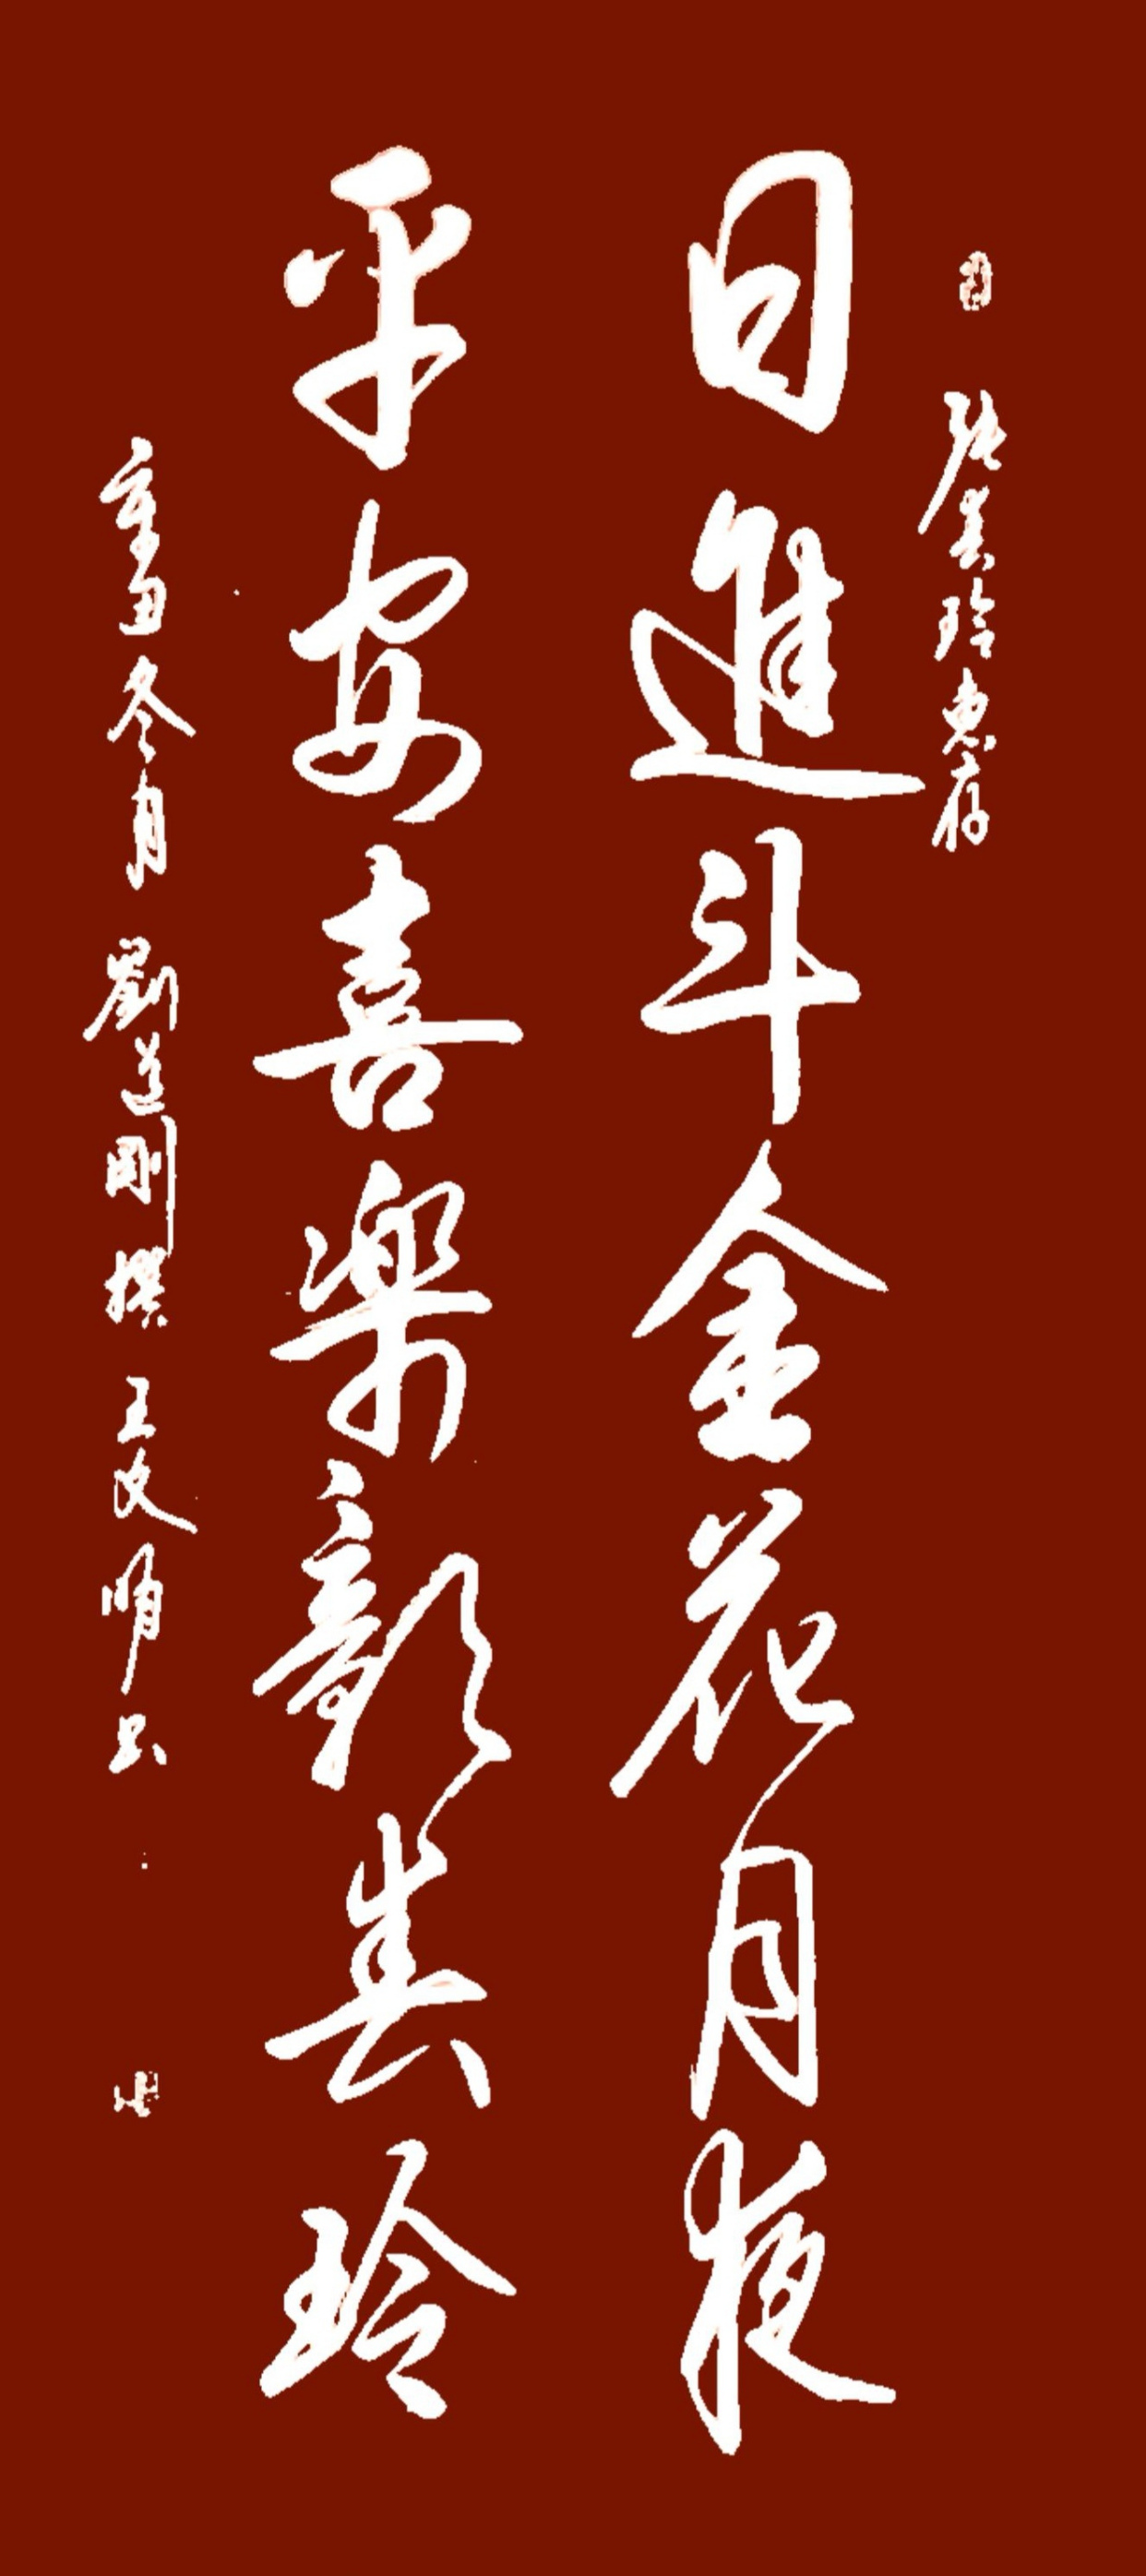 張美玲惠存
日進斗金花月夜
平安喜樂彰美玲
辛丑冬月 劉道剛撰 王文明书